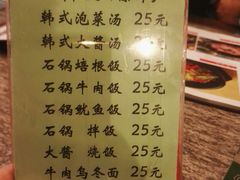 韩式泡菜汤 25元
韩式大酱汤 25元
石锅培根饭 25元
石锅牛肉饭 25元
石锅鱿鱼饭 25元
石锅 拌饭 25元
大酱 烧饭 25元
牛肉乌冬面 25元